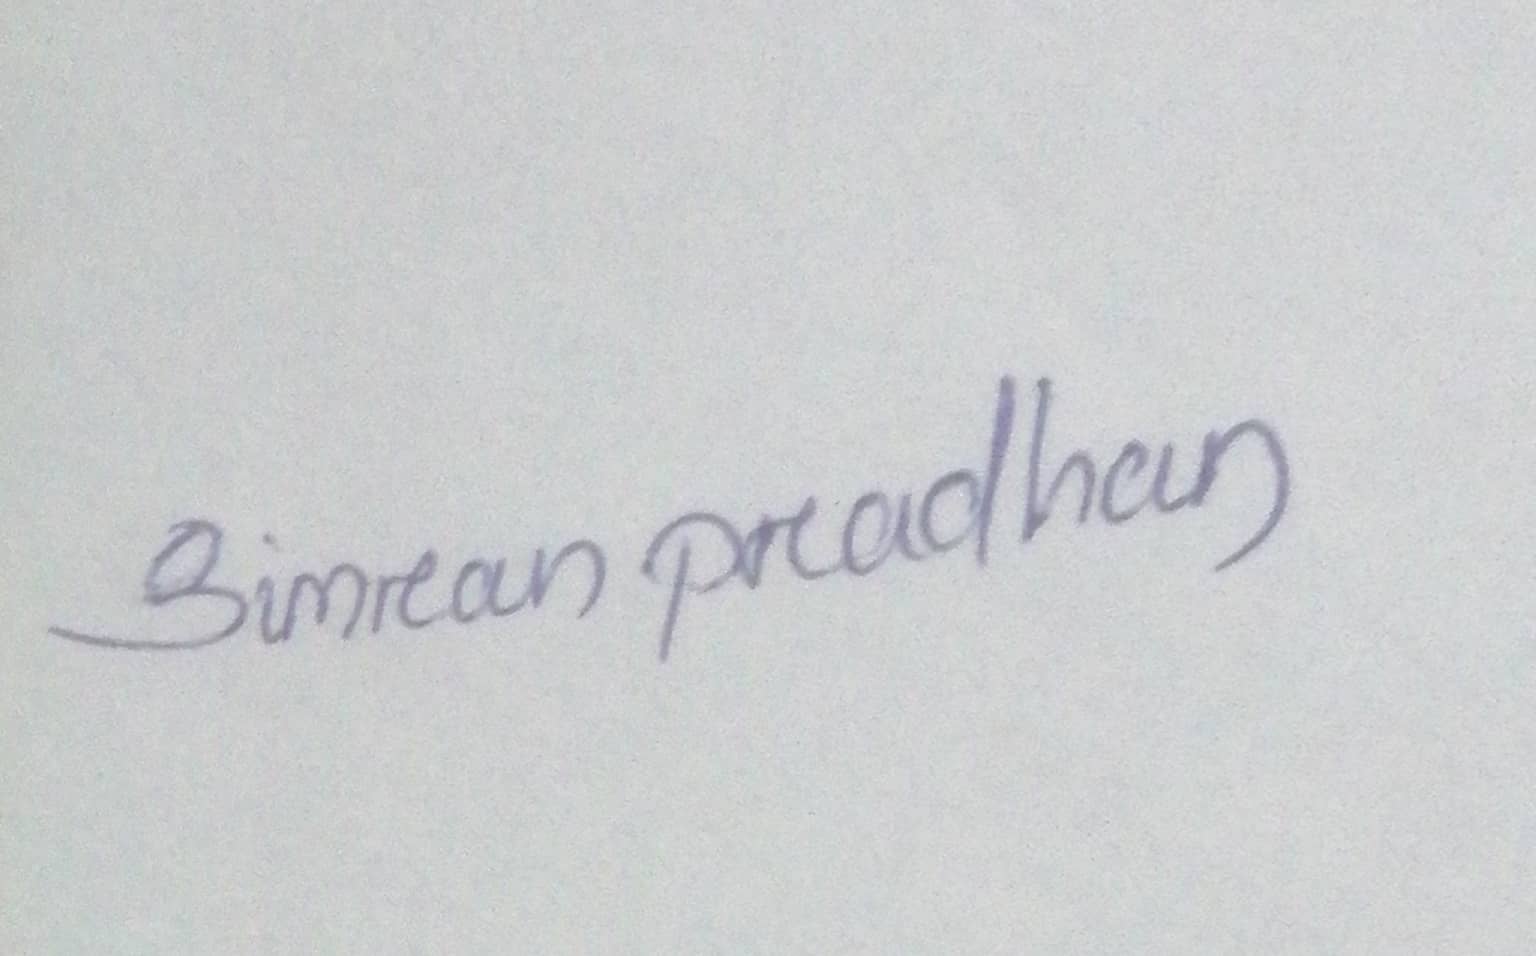 Simran pradhan